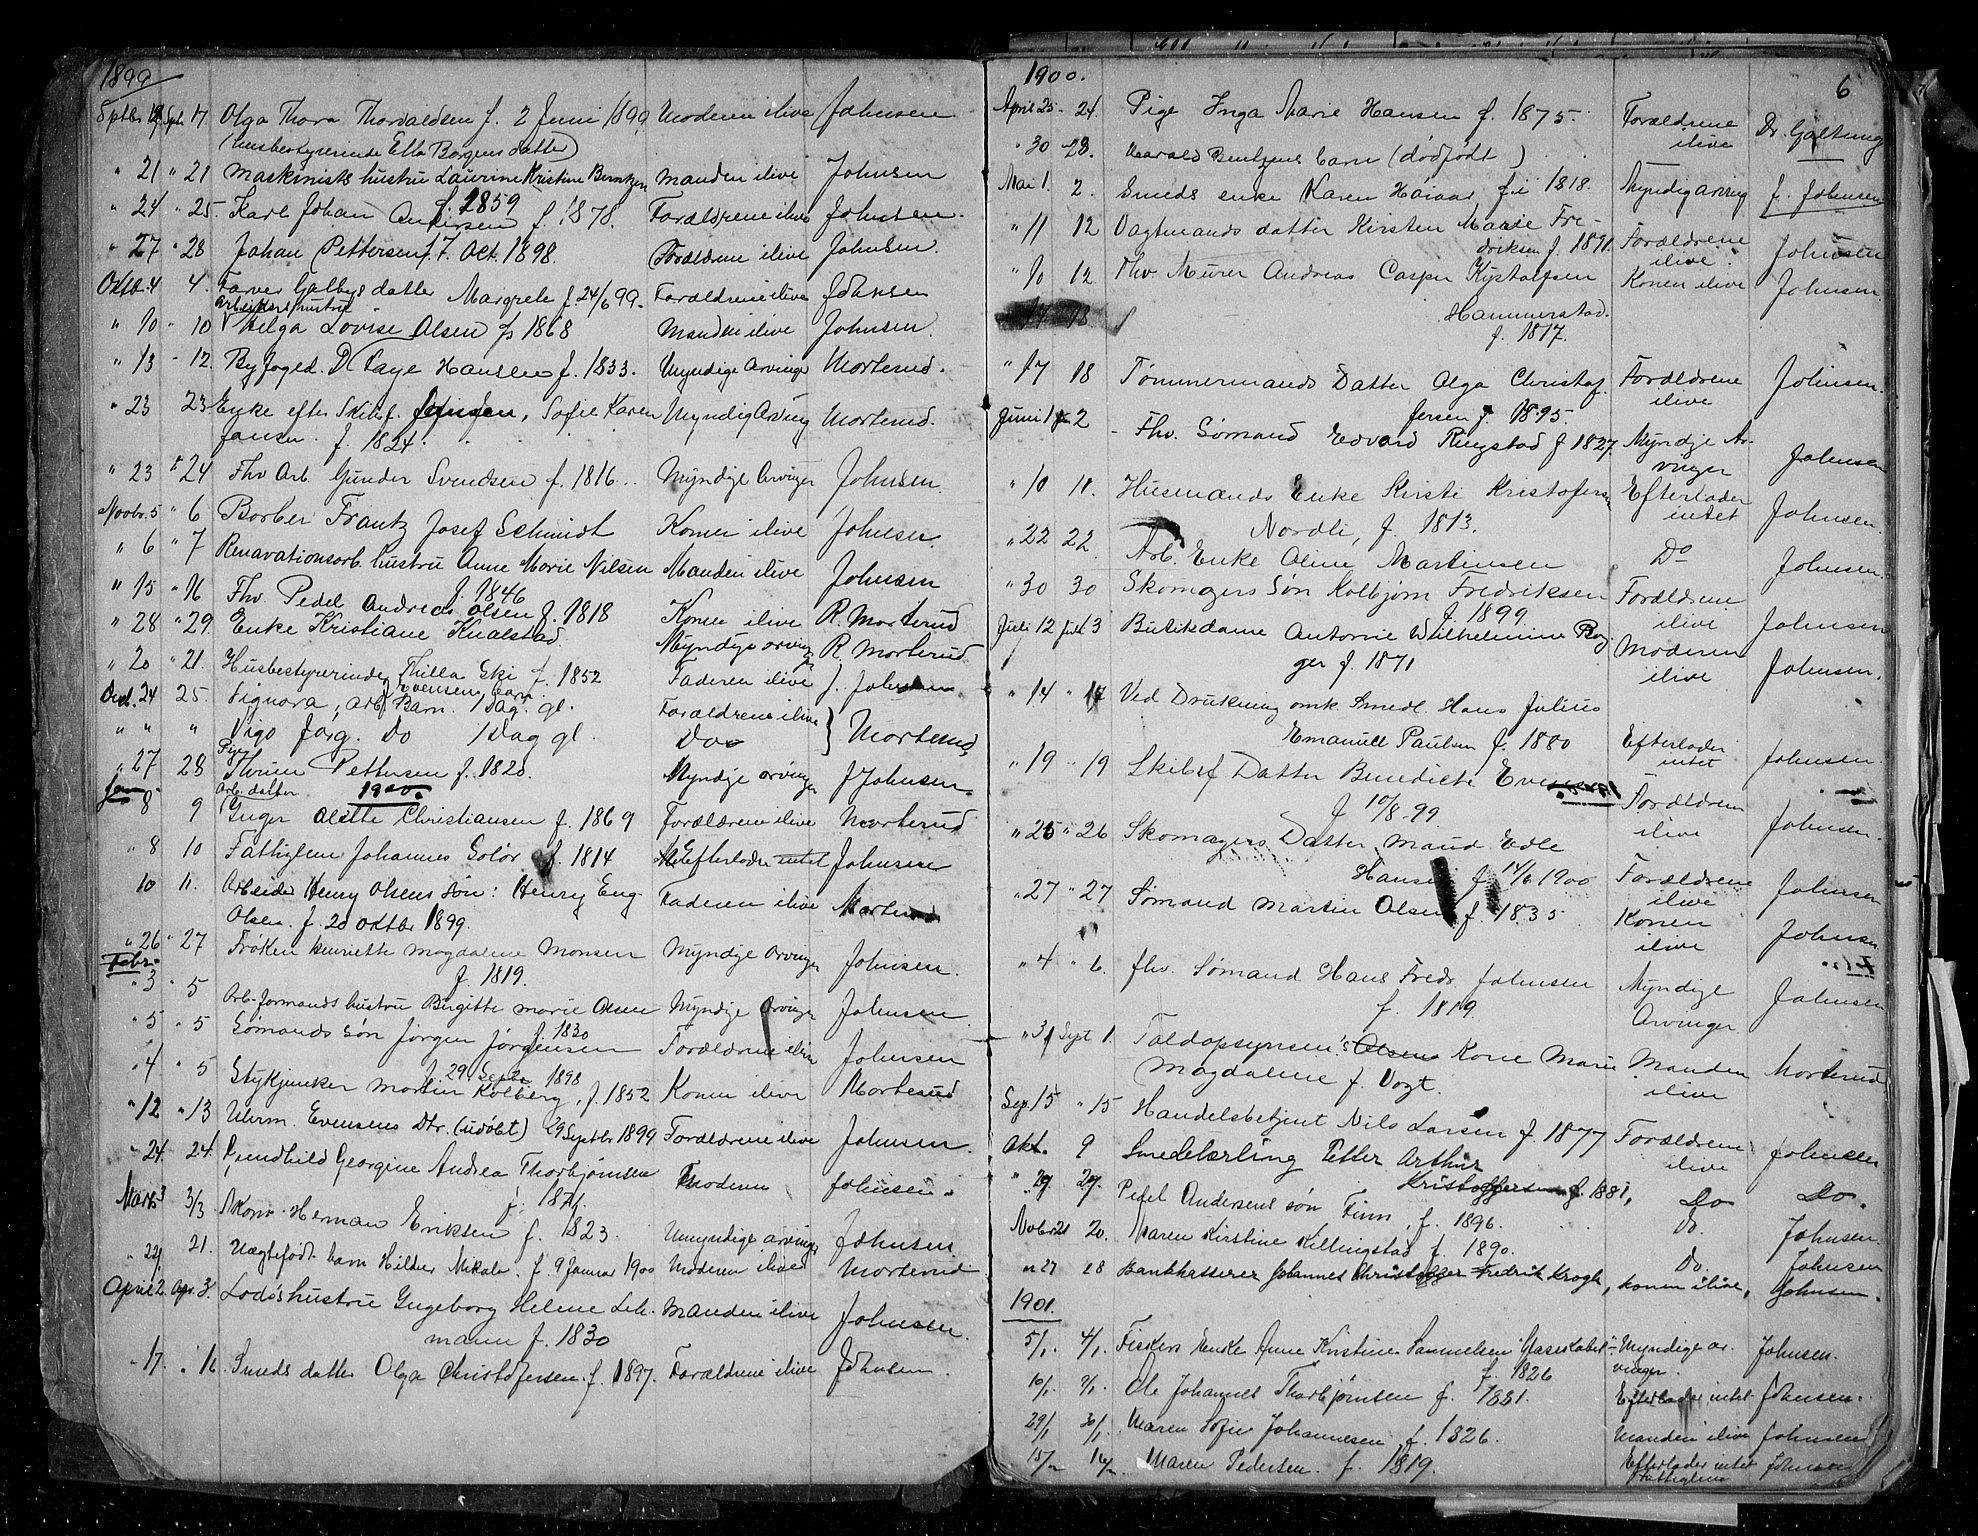 1899
Septbr 17 Olga Thora Thorvaldsen f. 2 Juni 1899 Moderen ilive Johnsen
(husbestyrerinde Ella Borgens datter)
" 21 " 21 Maskinists hustru Laurine Kristine Berntzen Manden ilive Johnsen
f. 1859
" 24 " 25. Karl Johan Andersen f. 1878. Forældrene ilive Johnsen.
" 27 " 28 Johan Pettersen f. 7. Oct. 1898. Forældrene ilive Johnsen.
Oktb. 4 4. Farver Galbys datter Margrete f. 24/6 99. Forældrene ilive Johnsen
Arbeiders hustru
" 10 " 10 Helga Lovise Olsen f. 1868 Manden ilive Johnsen.
" 13 " 12. Byfoged D. Faye Hansen f. 1833. Myndige Arvinger Morterud.
" 23 23 Enke efter Skibsf. Jansen, Sofie Karen Myndig Arving Morterud.
Jansen. f. 1824.
" 23 " 24 Fhv Arb. Gunder Svendsen f. 1816.. Myndige Arvinger Johnsen.
Novbr. 5 " 6 Barber Frantz Josef Schmidt Konen ilive Johnsen.
" 6 " 7 Renovationsarb. hustru Anne Marie Nilsen Manden ilive Johnsen
f. 1846
" 15 " 16 Fhv. Pedel Andreas Olsen f. 1818 Konen ilive R. Morterud
" 28 " 29. Enke Kristiane Knalstad. Myndige arvinger R Morterud
" 20 " 21. Husbestyrerinde Thilla Eki f. 1852 Faderen ilive J. Johnsen
Decb. 24 25. Signora, Arb. Evensens barn. 1 Dag. gl. Forældrene ilive
" " " Vigo Jørg. Do 1 Dag gl. Do } Morterud
Pige
" 27 28 Thrine Pettersen f. 1820. Myndige arvinger J Johnsen.
Jan. Arb. datter 1900.
8 9 Inger Alette Christiansen f. 1869 Forældrene ilive Morterud
" 8 10 Fattiglem Johannes Solør f. 1814 Efterlader intet Johnsen
10 11. Arbeider Henry Olsens søn: Henry Eng. Faderen ilive Morterud
Olsen. f. 20 oktbr 1899.
" 26 " 27 Frøken Henriette Magdalene Monsen Myndige Arvinger Johnsen.
f. 1819.
Febr.
" 3 " 5 Arb.formands hustru Birgitte Marie Olsen Myndige Arvinger Johnsen.
f. 1830
" 5 " 5 Sømands søn Jørgen Jørgensen Forældrene ilive Johnsen
f. 29 Septr 1898
" 4 " 5 Stykjunker Martin Kolberg, f. 1852 Konen ilive Morterud
" 12 " 13 Uhrm. Evensens Dtr. (udøbt) 29 Septbr 1899 Forældrene ilive Johnsen.
" 24. 24. Gundhild Georgine Andrea Thorbjørnsen Moderen Johnsen.
f. 1871.
Marts 3 3/3 Herman Eriksen f. 1823. Umyndige arvinger Johnsen.
21. Uægtefødt barn Hildur f. 9 Januar 1900 Moderen ilive Morterud
April 2. Apr. 3. Lods hustru Ingeborg Helene Leh- Manden ilive Johnsen.
mann f. 1830
" 17. " 16. Smeds datter Olga Christofersen f. 1897. Forældrene ilive Johnsen.
1900. 6
April 25 24. Pige Inga Marie Hansen f. 1875. Forældrene ilive Dr. Galtung
" 30 28. Harald Bentzens barn (dødfødt)
Mai 1. 2. Smeds enke Karen f. i 1818. Myndig arving J. Johnsen
" 11 12 Vagtmands datter Kirsten Marie Fre-
driksen f. 1891. Forældrene ilive. Johnsen
" 10 12. Fhv. Murer Andreas Casper Konen ilive Johnsen.
17 18 Hammerstad.
f. 1817.
" 17 18 Tømmermands Datter Olga Christof- Forældrene ilive Johnsen.
fersen f. 1895.
Juni 1 2 Fhv. Sømand Edvard Ringstad f 1827. Myndige Ar-
vinger Johnsen
" 10 11. Husmands Enke Kirsti Kristofers. Efterlader intet Johnsen.
Nordli, f. 1813.
" 22 22. Arb. Enke Oline Martinsen Do Johnsen.
" 30 30 Skomagers Søn Kolbjørn Fredriksen Forældrene ilive Johnsen
f. 1899.
Juli 12 Juli 13 Butikdame Antonie Wilhelmine Moderen ilive Johnsen.
ger f. 1871
" 14 " 17 Ved Drukning omk. Smedl. Hans Julius
Emanuel Paulsen f. 1880 Efterlader intet Johnsen.
" 19 " 19 Skibsf Datter Benedicte Evensen Forældrene ilive Johnsen.
f 10/8 99.
" 25 " 26 Skomagers Datter Maud Edle
Hansen f. 14/6 1900 Forældrene ilive Johnsen
" 27 " 27 Sømand Martin Olsen f. 1835. Konen ilive Johnsen
" 4 " 6. fhv. Sømand Hans Fredr. Johnsen Myndige Arvinger Johnsen
f. 1819.
" 31 Sept 1. Toldopsynsm.s Olsens Kone Marie Manden ilive Morterud
Magdalene f. Vogt.
Sep. 15 " 15 Handelsbetjent Nils Larsen f. 1877 Forældrene ilive Johnsen
Okt. 9 Smedelærling Petter Arthur
Kristoffersen f. 1881, Do Do.
" 29 29. Pedel Andersens søn Finn, f. 1896. Do. Johnsen
Novbr 21 20. Maren Kirstine Killingstad f. 1890. Do. Johnsen
" 27 28 Bankkasserer Johannes Christoffer Fredrik Krogh, konen ilive, Johnsen.
1901.
5/1. 4/1. Fiskers Enke Anne Kristine Samuelsen f. 1826 Myndige ar-
vinger. Johnsen.
10/1. 9/1. Ole Johannes Thorbjørnsen f. 1831. Efterlader intet Johnsen.
29/1 30/1. Maren Sofie Johannesen f. 1826. Manden ilive Johnsen
Maren Pedersen. f. 1819. Efterlader intet Johnsen
Fattiglem